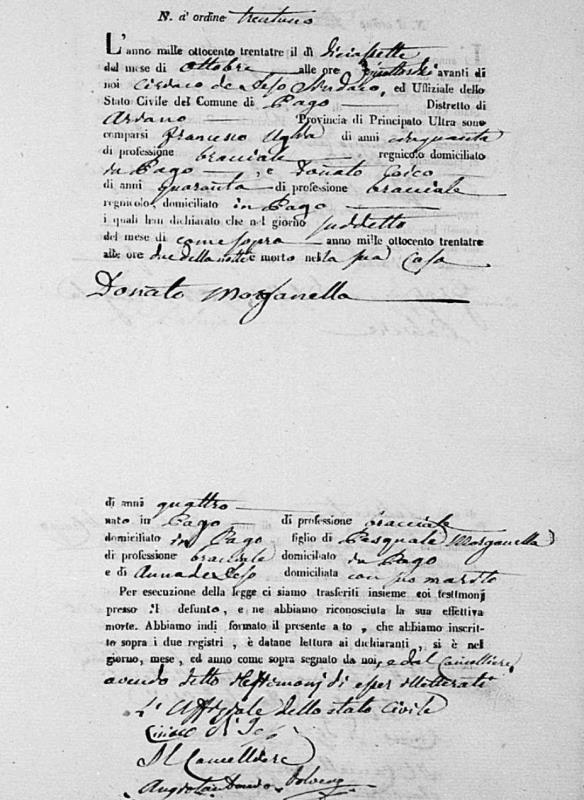 N. d'ordine trentuno
L'anno mille ottocento trentatre il dì diciasette
del mese di ottobre alle ore avanti di
noi Ciriaco de Leso Sindaco, ed Uffiziale dello
Stato Civile del Comune di Pago Distretto di
Ariano Provincia di Principato Ultra sono
comparsi Francesco di anni cinquanta
di professione bracciale regnicolo domiciliato
in Pago , e Donato
di anni quaranta di professione bracciale
regnicolo, domiciliato in Pago
i quali han dichiarato che nel giorno suddetto
del mese di come sopra anno mille ottocento trentatre
alle ore due della notte è morto nella sua casa
Donato Morganella
di anni quattro
nato in Pago di professione bracciale
domiciliato in Pago figlio di Pasquale Morganella
di professione bracciale domiciliato in Pago
e di Anna de Leso domiciliata con suo marito
Per esecuzione della legge ci siamo trasferiti insieme coi testimonj
presso il defunto, e ne abbiamo riconosciuta la sua effettiva
morte. Abbiamo indi formato il presente atto, che abbiamo inscrit-
to sopra i due registri, è datane lettura ai dichiaranti, si è nel
giorno, mese, ed anno come sopra segnato da noi, e dal Cancelliere
avendo detto i testimonj di esser illetterati
L'Uffiziale dello stato Civile
Ciriaco de Leso
Il Cancelliere